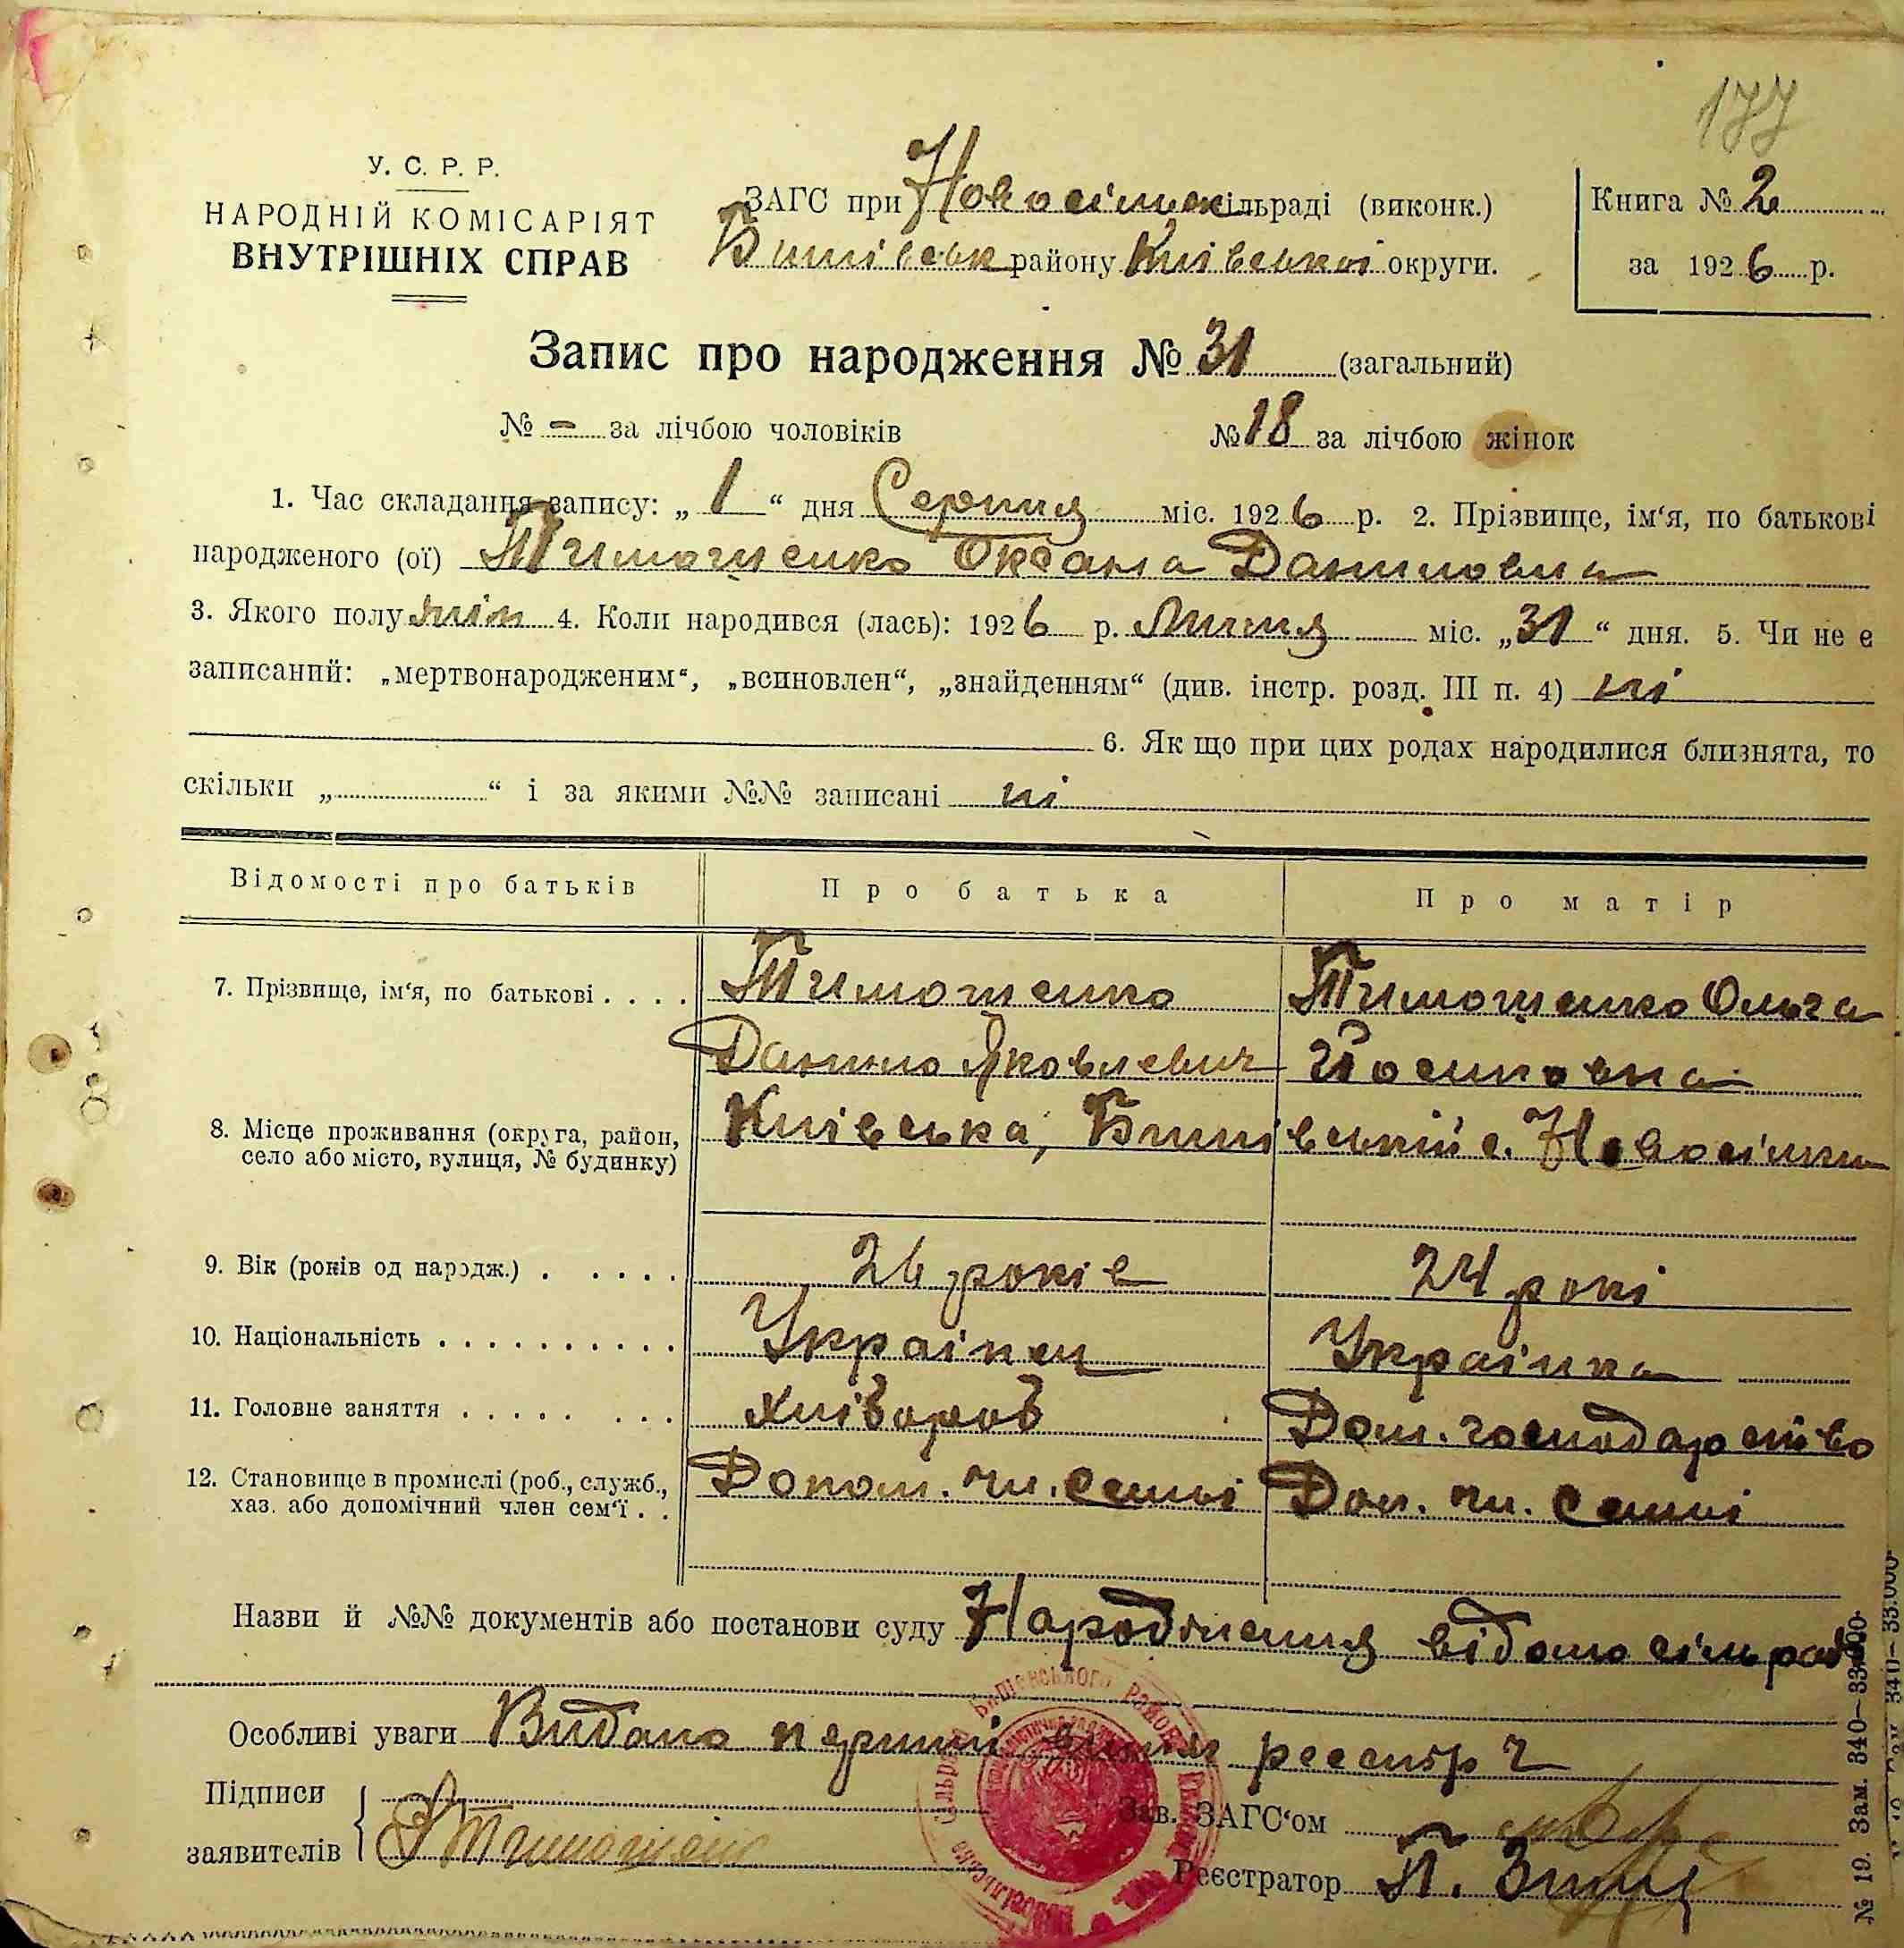 177
У. С. Р. Р.
НАРОДНІЙ КОМІСАРІЯТ
ВНУТРІШНІХ СПРАВ
ЗАГС при Новосілиц сільраді (виконк.)
Бишівськ району Київської округи.
Книга № 2
за 1926 р.
Запис про народження № 31 (загальний)
№ - за лічбою чоловіків № 18 за лічбою жінок
1. Час складання запису: „ 1 “ дня Серпня міс. 1926 р. 2. Прізвище, ім‘я, по батькові
народженого (ої) Тимошенко Оксана Даниловна
3. Якого полу жін 4. Коли народився (лась): 1926 р. Липня міс. „31“ дня. 5. Чи не є
записаний: „мертвонародженим“, „всиновлен“, „знайденням“ (див. інстр. розд. III п. 4) ні
6. Як що при цих родах народилися близнята, то
скільки „ “ і за якими №№ записані ні
Відомості про батьків Про батька Про матір
7. Прізвище, ім‘я, по батькові . . . . Тимошенко Тимошенко Ольга
Данило Яковлевич Йосиповна
8. Місце проживання (округа, район, Київська, Бишівський с. Новосілки
село або місто, вулиця, № будинку)
9. Вік (років од народж.) . . . . . 26 років 24 рокі
10. Національність . . . . . . . . . . Украінец Украінка
11. Головне заняття . . . . . . . . Хлібороб Дом. господарство
12. Становище в промислі (роб., служб., Допом. чл. семьі Доп. чл. семьі
хаз. або допомічний член сем‘ї . .
Назви й №№ документів або постанови суду Народження відомо сільраді
Особливі уваги Видано перший реєстр 2
Підписи
заявителів Тимошенко
Зав. ЗАГС‘ом
Реєстратор П.
№ 19. Зам. 340—33.000